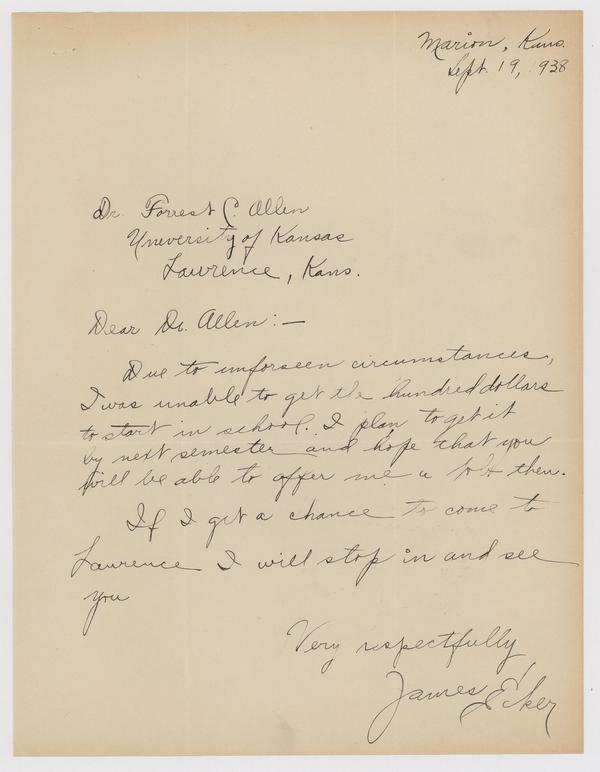 Marion, Kans.
Sept. 19, 1938
Dr. Forrest C. Allen
Uneversity of Kansas
Lawrence, Kans.
Dear Dr. Allen:—
Due to unforseen circumstances,
I was unable to get the hundred dollars
to start in school. I plan to get it
by next semester and hope that you
will be able to offer me a job then.
If I get a chance to come to
Lawrence I will stop in and see
you
Very respectfully
James Ecker